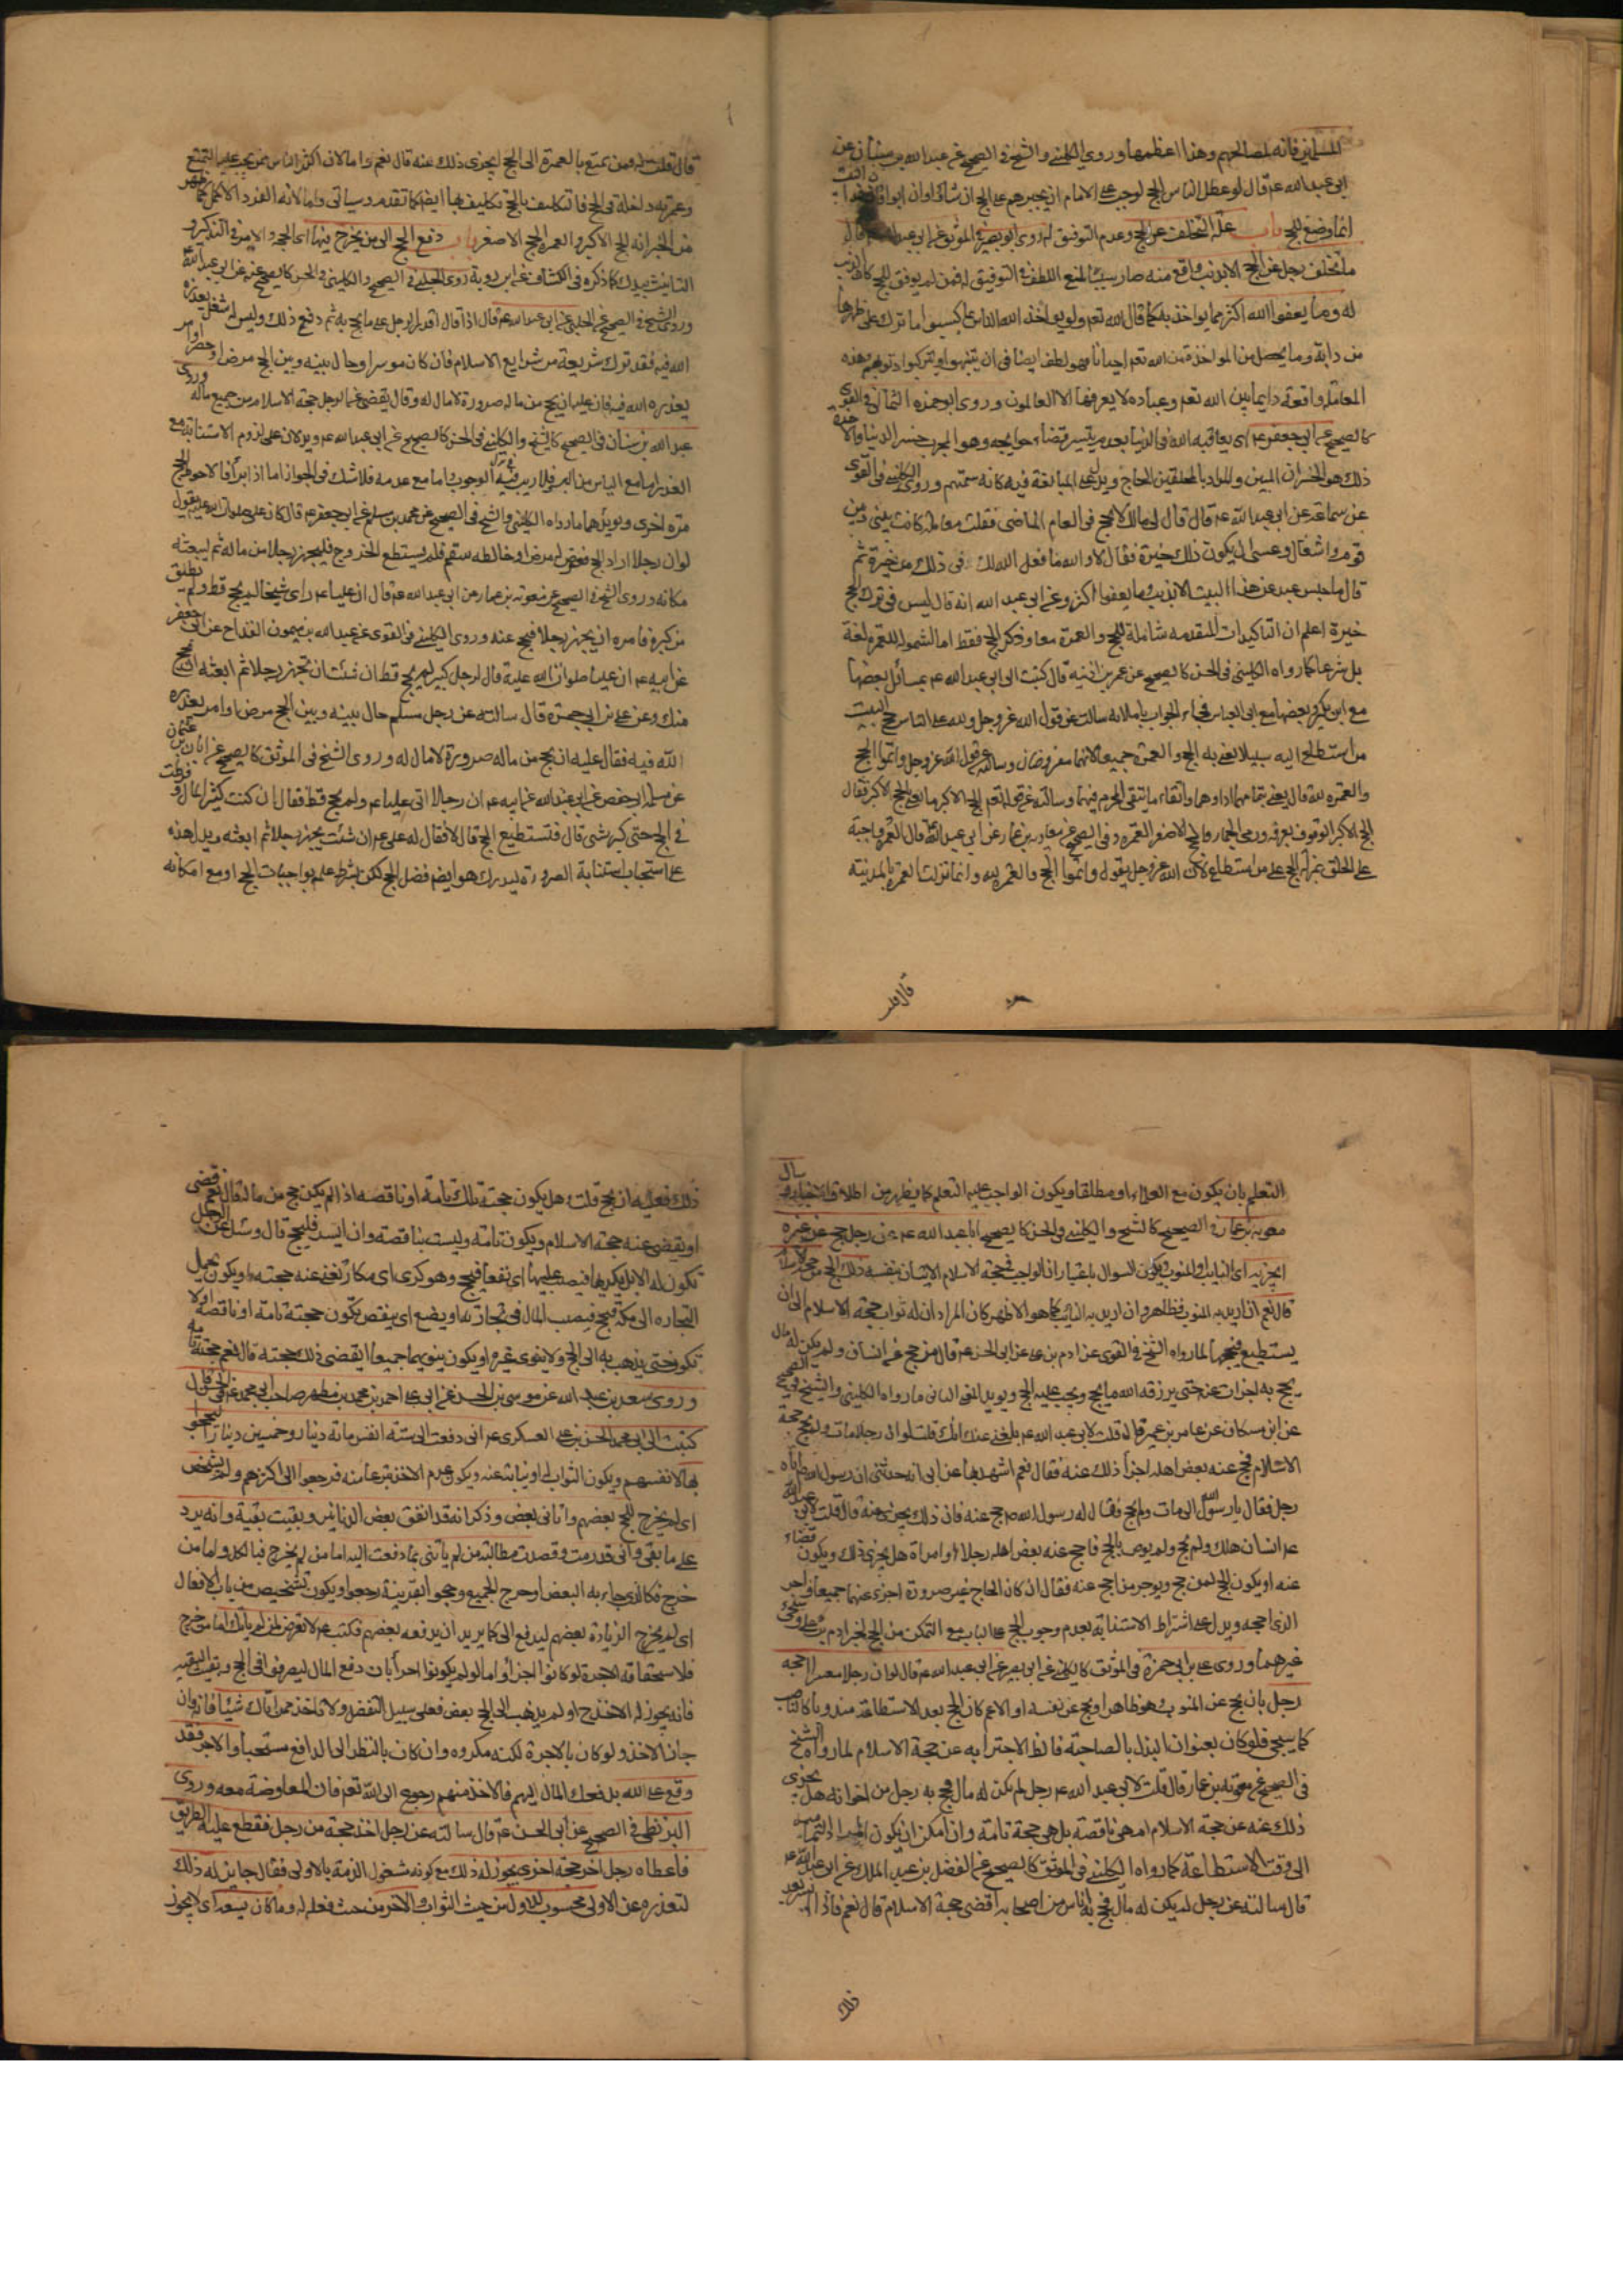 المسلمين فانه لمصالحهم وهذا اعظمها وروى الكليني والشيخ في الصحيح عن عبد الله بن سنان عن
ابي عبد الله ع قال لو عطل الناس الحج لوجب على الامام ان يجبرهم على الحج ان شاؤا وان ابوا فان هذا البيت
انما وضع للحج باب علة التخلف عن الحج وعدم التوفيق له روى ابو بصير في الموثق عن ابي عبد الله ع قال
ما تخلف رجل عن الحج الا بذنب واقع منه صار سببا لمنع اللطف في التوفيق له فمن لم يوفق للحج كان الذنب
له وما يعفو الله اكثر مما يواخذ به كما قال الله تعم ولو يواخذ الله الناس بما كسبوا ما ترك على ظهرها
من دابة وما يحصل من المواخذة من الله تعم احيانا فهو لطف ايضا في ان يتنبهوا ويتركوا ذنوبهم وهذه
المعاملة واقعة دايما بين الله تعم وعباده لا يعرفها الا العالمون وروى ابو حمزه الثمالي في القوى
كالصحيح عن ابي جعفر ع اى يعاقبه الله في الدنيا بعد تيسر قضاء حوايجه وهو المجرب خسر الدنيا والاخرة
ذلك هو الخسران المبين والمراد بالمحلقين الحاج ويدل على المبالغة فيه كانه سمتهم وروى الكليني في القوى
عن سماعة عن ابي عبد الله ع قال قال لي مالك لا تحج في العام الماضى فقلت معاملة كانت بيني وبين
قوم واشغال وعسى ان يكون ذلك خيرة فقال لا والله ما فعل الله لك في ذلك من خيرة ثم
قال ما حبس عبد عن هذا البيت الا بذنب وما يعفوا اكثر وعن ابي عبد الله انه قال ليس في ترك الحج
خيرة اعلم ان التاكيدات المتقدمه شاملة للحج والعمرة معا وذكر الحج فقط اما لشموله للعمرة لغة
بل شرعا كما رواه الكليني في الحسن كالصحيح عن عمر بن اذينه قال كتبت الى ابي عبد الله ع بمسائل بعضها
مع ابن بكير وبعضها مع ابي العباس فجاء الجواب باملائه سالت عن قول الله عز وجل ولله على الناس حج البيت
من استطاع اليه سبيلا يعنى به الحج والعمرة جميعا لانهما مفروضان وسالته عن قول الله عز وجل واتموا الحج
والعمره لله قال يعنى بتمامهما اداوهما واتقاء ما يتقى المحرم فيهما وسالته عن قوله تعم الحج الاكبر ما يعنى بالحج الاكبر فقال
الحج الاكبر الوقوف بعرفه ورمى الجمار والحج الاصغر العمره وفي الصحيح عن معاويه بن عمار عن ابي عبد الله ع قال العمرة واجبة
على الخلق بمنزلة الحج على من استطاع لان الله عز وجل يقول واتموا الحج والعمره لله وانما نزلت العمرة بالمدينة
قال قلت
قال قلت له فمن تمتع بالعمرة الى الحج ايجزى ذلك عنه قال نعم واما لان اكثر الناس ممن يجب عليه التمتع
وعمرته داخلة في الحج فالتكليف بالحج تكليف بها ايضا كما تقدم وسياتى واما لانه الفرد الاكمل كما ظهر
من الخبر انه الحج الاكبر والعمرة الحج الاصغر باب دفع الحج الى من يخرج فيها اى الحجه والامر في التذكير و
التانيث بيدك كما ذكره في الكشاف عن ابن روبة روى الحلبي في الصحيح والكليني في الحسن كالصحيح عنه عن ابي عبد الله
وروى الشيخ في الصحيح عن الحلبي عن ابي عبد الله ع قال اذا قدر الرجل على ما يحج به ثم دفع ذلك وليس له شغل يعذره
الله فيه فقد ترك شريعة من شرايع الاسلام فان كان موسرا وحال بينه وبين الحج مرض او حصر او امر
يعذره الله فيه فان عليه ان يحج من ماله صرورة لا مال له وقال يقضى عن الرجل حجة الاسلام من جميع ماله وروى
عبد الله بن سنان في الصحيح كالشيخ والكليني في الحسن كالصحيح عن ابي عبد الله ع ويدلان على لزوم الاستنابة مع
العذر اما مع الياس من البرء فلا ريب في الوجوب واما مع عدمه فلا شك في الجواز اما اذا برأ فالاحوط الحج
مرة اخرى ويويدهما ما رواه الكليني والشيخ في الصحيح عن محمد بن مسلم عن ابي جعفر ع قال كان على صلوات الله عليه يقول
لو ان رجلا اراد الحج فعرض له مرض او خالطه سقم فلم يستطع الخروج فليجهز رجلا من ماله ثم ليبعثه
مكانه وروى الشيخ في الصحيح عن معوية بن عمار عن ابي عبد الله ع قال ان عليا ع راى شيخا لم يحج قط ولم يطق
من كبره فامره ان يجهز رجلا فيحج عنه وروى الكليني في القوى عن عبد الله بن ميمون القداح عن ابي جعفر
عن ابيه ع ان عليا صلوات الله عليه قال لرجل كبير لم يحج قط ان شئت ان تجهز رجلا ثم ابعثه ان يحج
عنك وعن على بن ابي حمزة قال سالته عن رجل مسلم حال بينه وبين الحج مرض او امر يعذره
الله فيه فقال عليه ان يحج من ماله صرورة لا مال له وروى الشيخ في الموثق كالصحيح عن ابان بن عثمان
عن سلمة ابي حفص عن ابي عبد الله عن ابيه ع ان رجلا اتى عليا ع ولم يحج قط فقال انى كنت كثير المال وفرطت
في الحج حتى كبر سنى قال فتستطيع الحج قال لا فقال له على ع ان شئت فجهز رجلا ثم ابعثه ويدل هذه
على استحباب استنابة الصرورة ليدرك هو ايضا فضل الحج لكن بشرط علمه بواجبات الحج او مع امكانه
التعلم بان يكون مع العلماء او مطلقا ويكون الواجب عليه التعلم كما يظهر من اطلاق الاخبار وسال
معوية بن عمار في الصحيح كالشيخ والكليني في الحسن كالصحيح ابا عبد الله ع عن رجل حج عن غيره
ايجزيه اى النايب او المنوب ويكون السوال باعتبار ان الواجب في حجة الاسلام الاتيان بنفسه ذلك الحج من حجة الاسلام
قال نعم ان اريد به المنوب فظاهر وان اريد به النايب كما هو الاظهر كان المراد ان له ثواب حجة الاسلام الى ان
يستطيع فيحج لما رواه الشيخ في القوى عن ادم بن على عن ابي الحسن ع قال من حج عن انسان ولم يكن له مال
يحج به اجزات عنه حتى يرزقه الله ما يحج ويجب عليه الحج ويويد المعنى الثانى ما رواه الكليني والشيخ في الصحيح
عن ابن مسكان عن عامر بن عميرة قال قلت لابي عبد الله ع بلغنى عنك انك قلت لو ان رجلا مات ولم يحج حجة
الاسلام فحج عنه بعض اهله اجزأ ذلك عنه فقال نعم اشهد بها عن ابي انه حدثنى ان رسول الله ص اتاه
رجل فقال يا رسول الله ان ابي مات ولم يحج فقال له رسول الله ص حج عنه فان ذلك يجزى عنه قال قلت لابي عبد الله
ع انسان هلك ولم يحج ولم يوص بالحج فاحج عنه بعض اهله رجلا او امراة هل يجزى ذلك ويكون قضاء
عنه او يكون الحج لمن حج ويوجر من احج عنه فقال ان كان الحاج غير صرورة اجزى عنهما جميعا واجر
الذى احجه ويدل على اشتراط الاستنابة بعدم وجوب الحج على النايب مع التمكن من الحج لخبر ادم بن على وسيجىء
غيرهما وروى على بن ابي حمزة في الموثق كالكليني عن ابي بصير عن ابي عبد الله ع قال لو ان رجلا معسرا احجه
رجل بان يحج عن المنوب وهو ظاهر او يحج عن نفسه او الاعم كان الحج بعد الاستطاعة مندوبا كالناصب
كما سيجئ فلو كان بعنوان البذل بالصاحبة فالظ الاجتزاء به عن حجة الاسلام لما رواه الشيخ
في الصحيح عن معوية بن عمار قال قلت لابي عبد الله ع رجل لم يكن له مال فحج به رجل من اخوانه هل يجزى
ذلك عنه عن حجة الاسلام ام هى ناقصة بل هى حجة تامة وان امكن ان يكون المراد التمامية
الى وقت الاستطاعة كما رواه الكليني في الموثق كالصحيح عن الفضل بن عبد الملك عن ابي عبد الله ع
قال سالته عن رجل لم يكن له مال فحج به اناس من اصحابه اقضى حجة الاسلام قال نعم فاذا ايسر بعد
ذلك
ذلك فعليه ان يحج قلت هل يكون حجته تلك تامة او ناقصه اذا لم يكن حج من ماله قال نعم قضى
او يقضى عنه حجة الاسلام ويكون تامة وليست بناقصة وان ايسر فليحج قال وسئل عن الرجل
يكون له الابل يكريها فيصيب عليها اى نفعا فيحج وهو كرى اى مكار تغنى عنه حجته او يكون يحمل
التجاره الى مكة فيحج فيصيب المال في تجارته او يضع اى ينقص تكون حجته تامة او ناقصة او لا
تكون حتى يذهب به الى الحج ولا ينوى غيره او يكون ينويهما جميعا ايقضى ذلك حجته قال نعم حجته تامه
وروى سعد بن عبد الله عن موسى بن الحسن عن ابي على احمد بن محمد بن مطهر صاحب ابي محمد ع قال
كتبت الى ابي محمد الحسن بن على العسكرى ع انى دفعت الى سته انفس مائة دينار وخمسين دينارا ليحجوا
بها لانفسهم ويكون الثواب له او نيابة عنه ويكون عدم الاخذ تبرعا منه فرجعوا الى اكثرهم ولم يشخص
اى لم يخرج للحج بعضهم واتانى بعض وذكر انه قد انفق بعض الدنانير وبقيت بقية وانه يرد
على ما بقى وانى قد رمت وقصدت مطالبة من لم ياتنى بما دفعت اليه اما من لم يخرج فبالكل واما من
خرج فكالذى جاء به البعض او خرج الجميع وحجوا بقرينة رجعوا ويكون تشخيص من باب الافعال
اى لم يخرج الزيادة بعضهم ليدفع الى كما يريد ان يدفعه بعضهم فكتب ع لا تعرض لمن لم ياتك اما من خرج
فلاستحقاقه الاجرة لو كانوا اجراء واما لو لم يكونوا اجراء بان دفع المال ليصرفوا في الحج وبقيت البقيه
فانه يجوز له الاخذ ح او لم يذهب الى الحج بعض فعلى سبيل التفضل ولا تاخذ ممن اتاك شيئا فانه وان
جاز الاخذ ولو كان بالاجرة لكنه مكروه وان كان بالنظر الى الدافع مستحبا والاجر فقد
وقع على الله بدفعك المال اليهم فالاخذ منهم رجوع الى الله تعم فان المعاوضة معه وروى
البزنطى في الصحيح عن ابي الحسن ع قال سالته عن رجل اخذ حجة من رجل فقطع عليه الطريق
فاعطاه رجل اخر حجة اخرى يجوز له ذلك مع كونه مشغول الذمة بالاولى فقال جائز له ذلك
لتعذره عن الاولى محسوب للاول من حيث الثواب والاخر من حيث فعله له وما كان يسعه اى لا يجوز